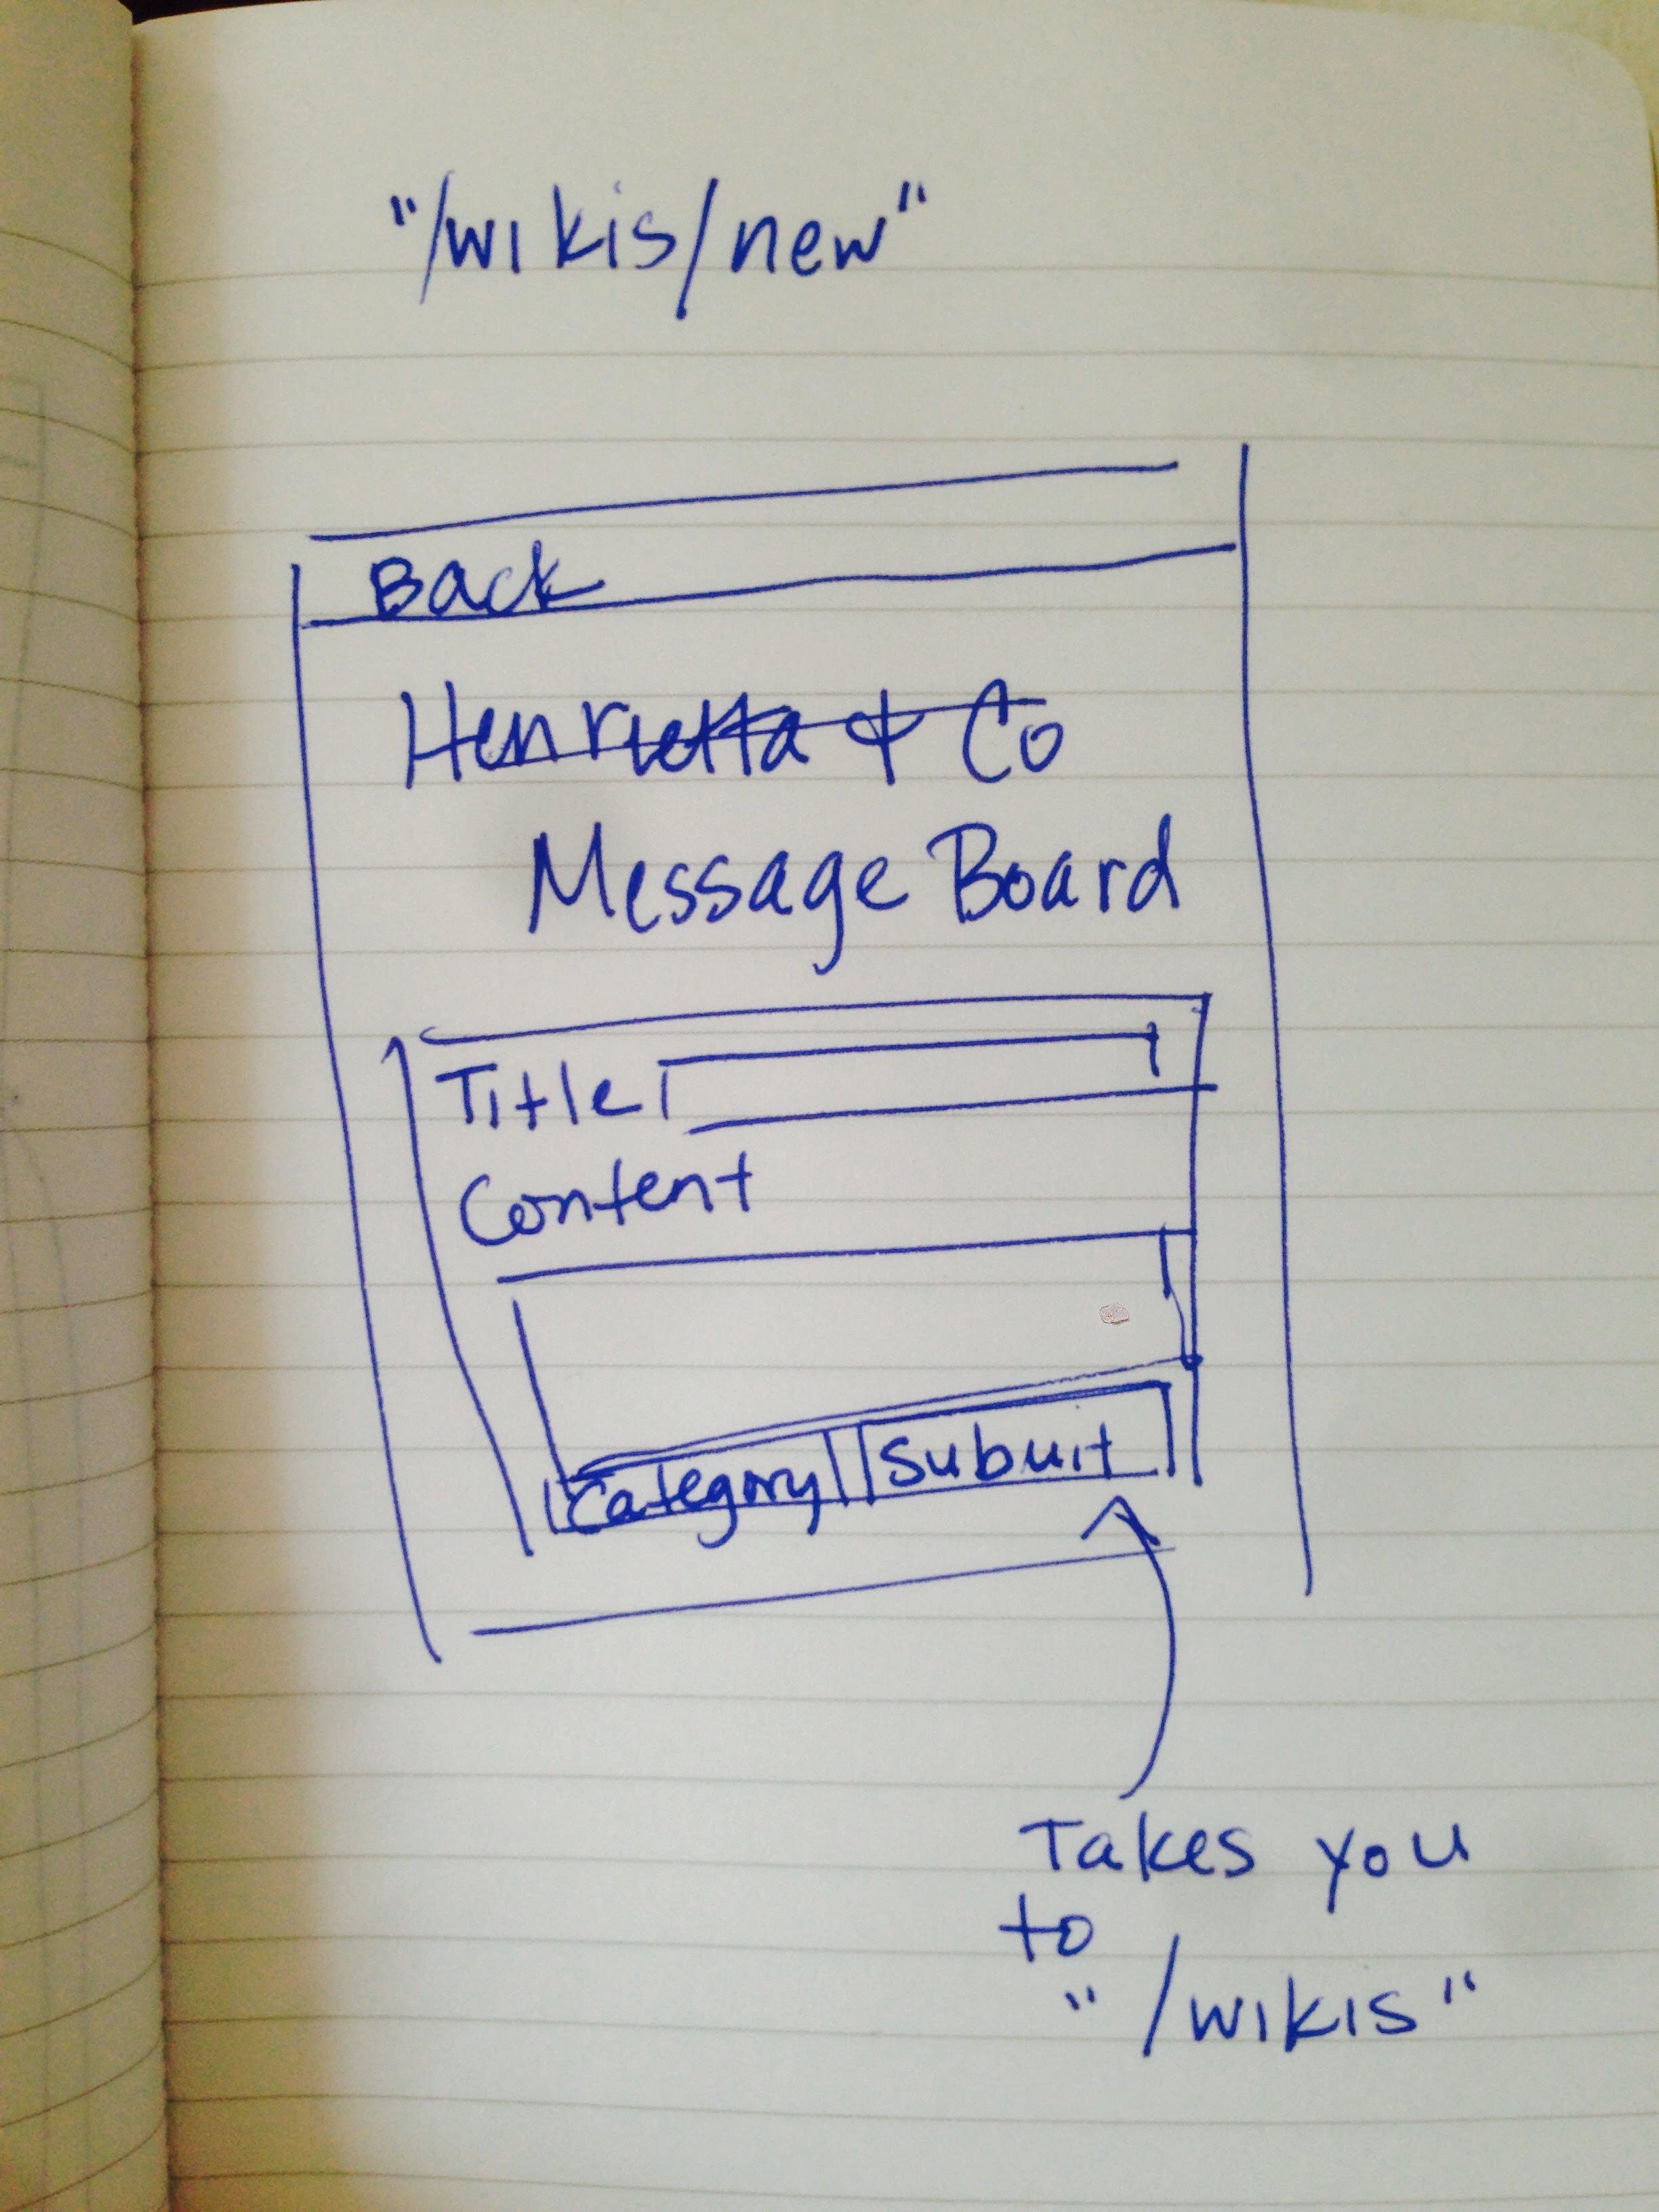 "/wikis/new"
Back
Henrietta & Co
Message Board
Title
Content
Category Submit
Takes you
to
"/wikis"